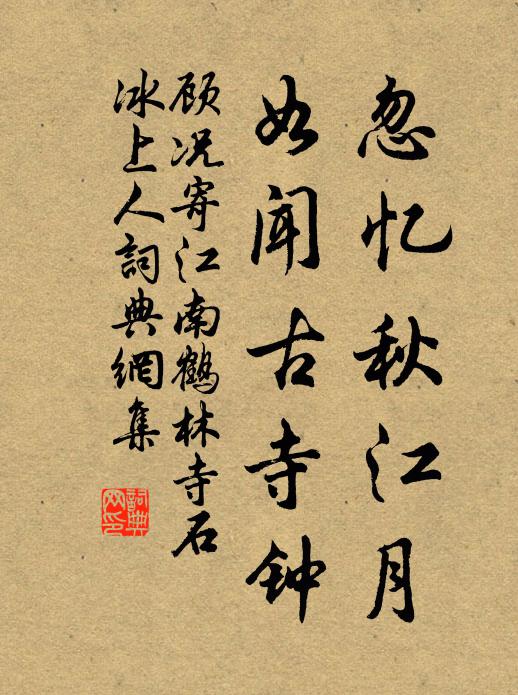 忽忆秋江月
如闻古寺钟
顾况寄江南鹤林寺石
冰上人詞典網集
詞典网印